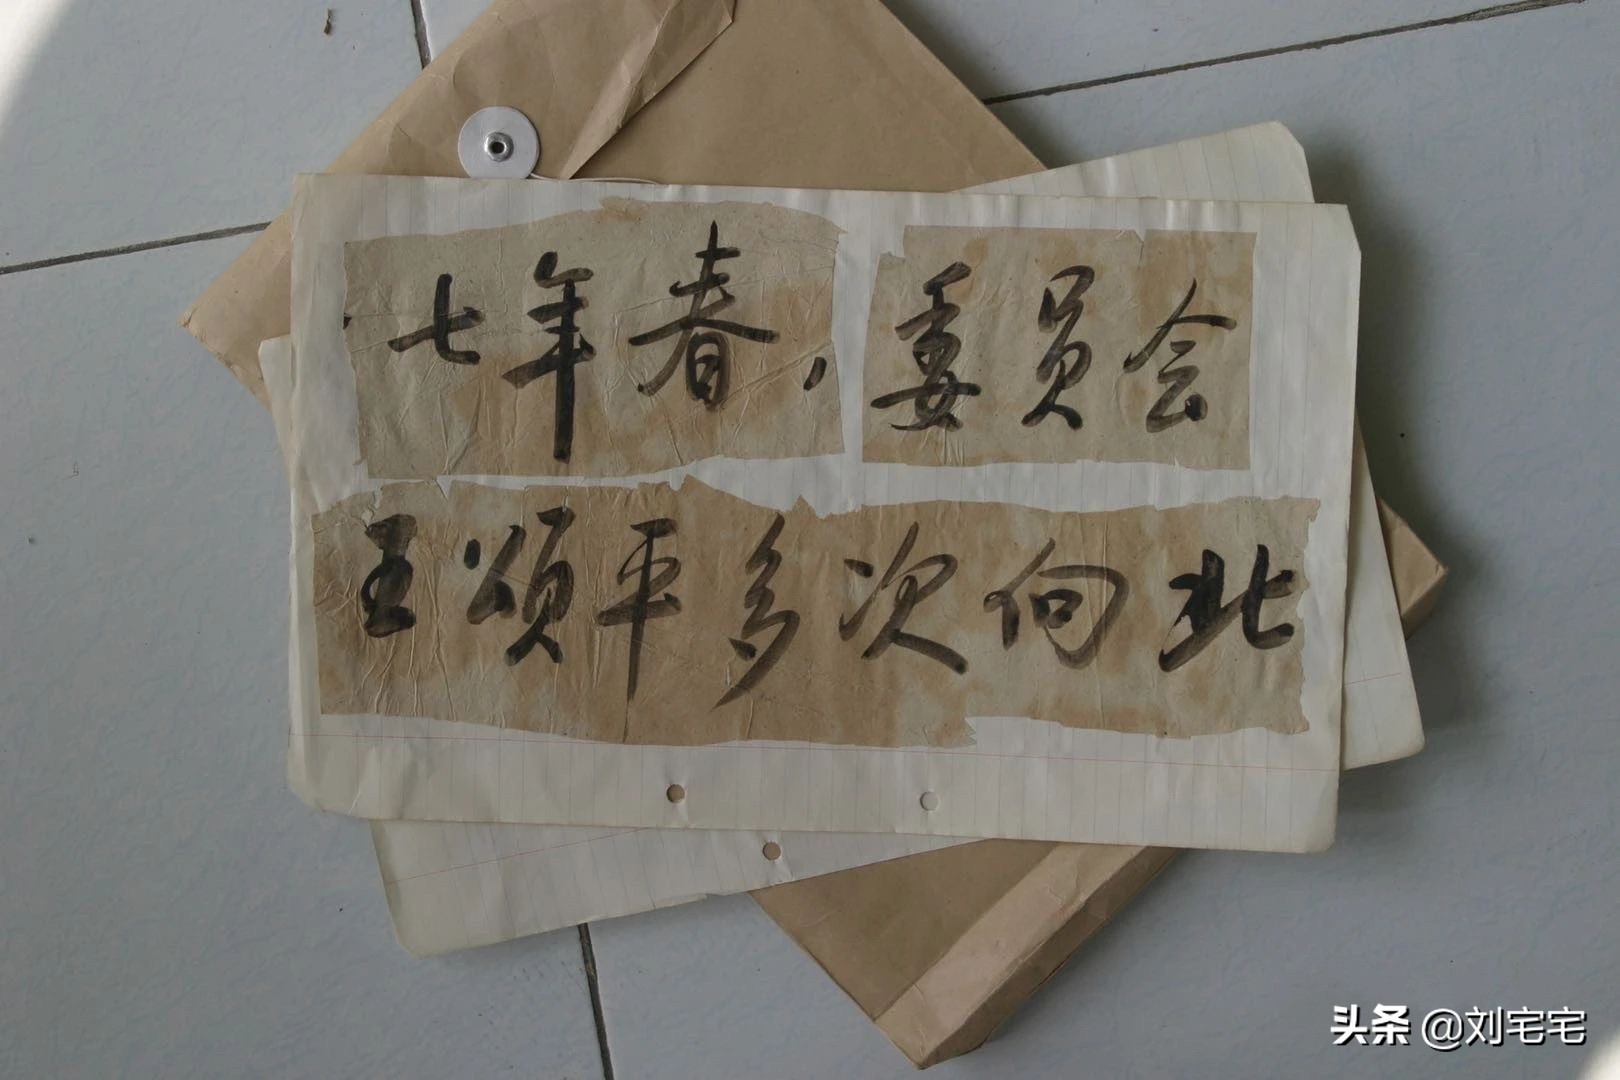 七年春，委员会
王颂平多次向北
头条 @刘宅宅